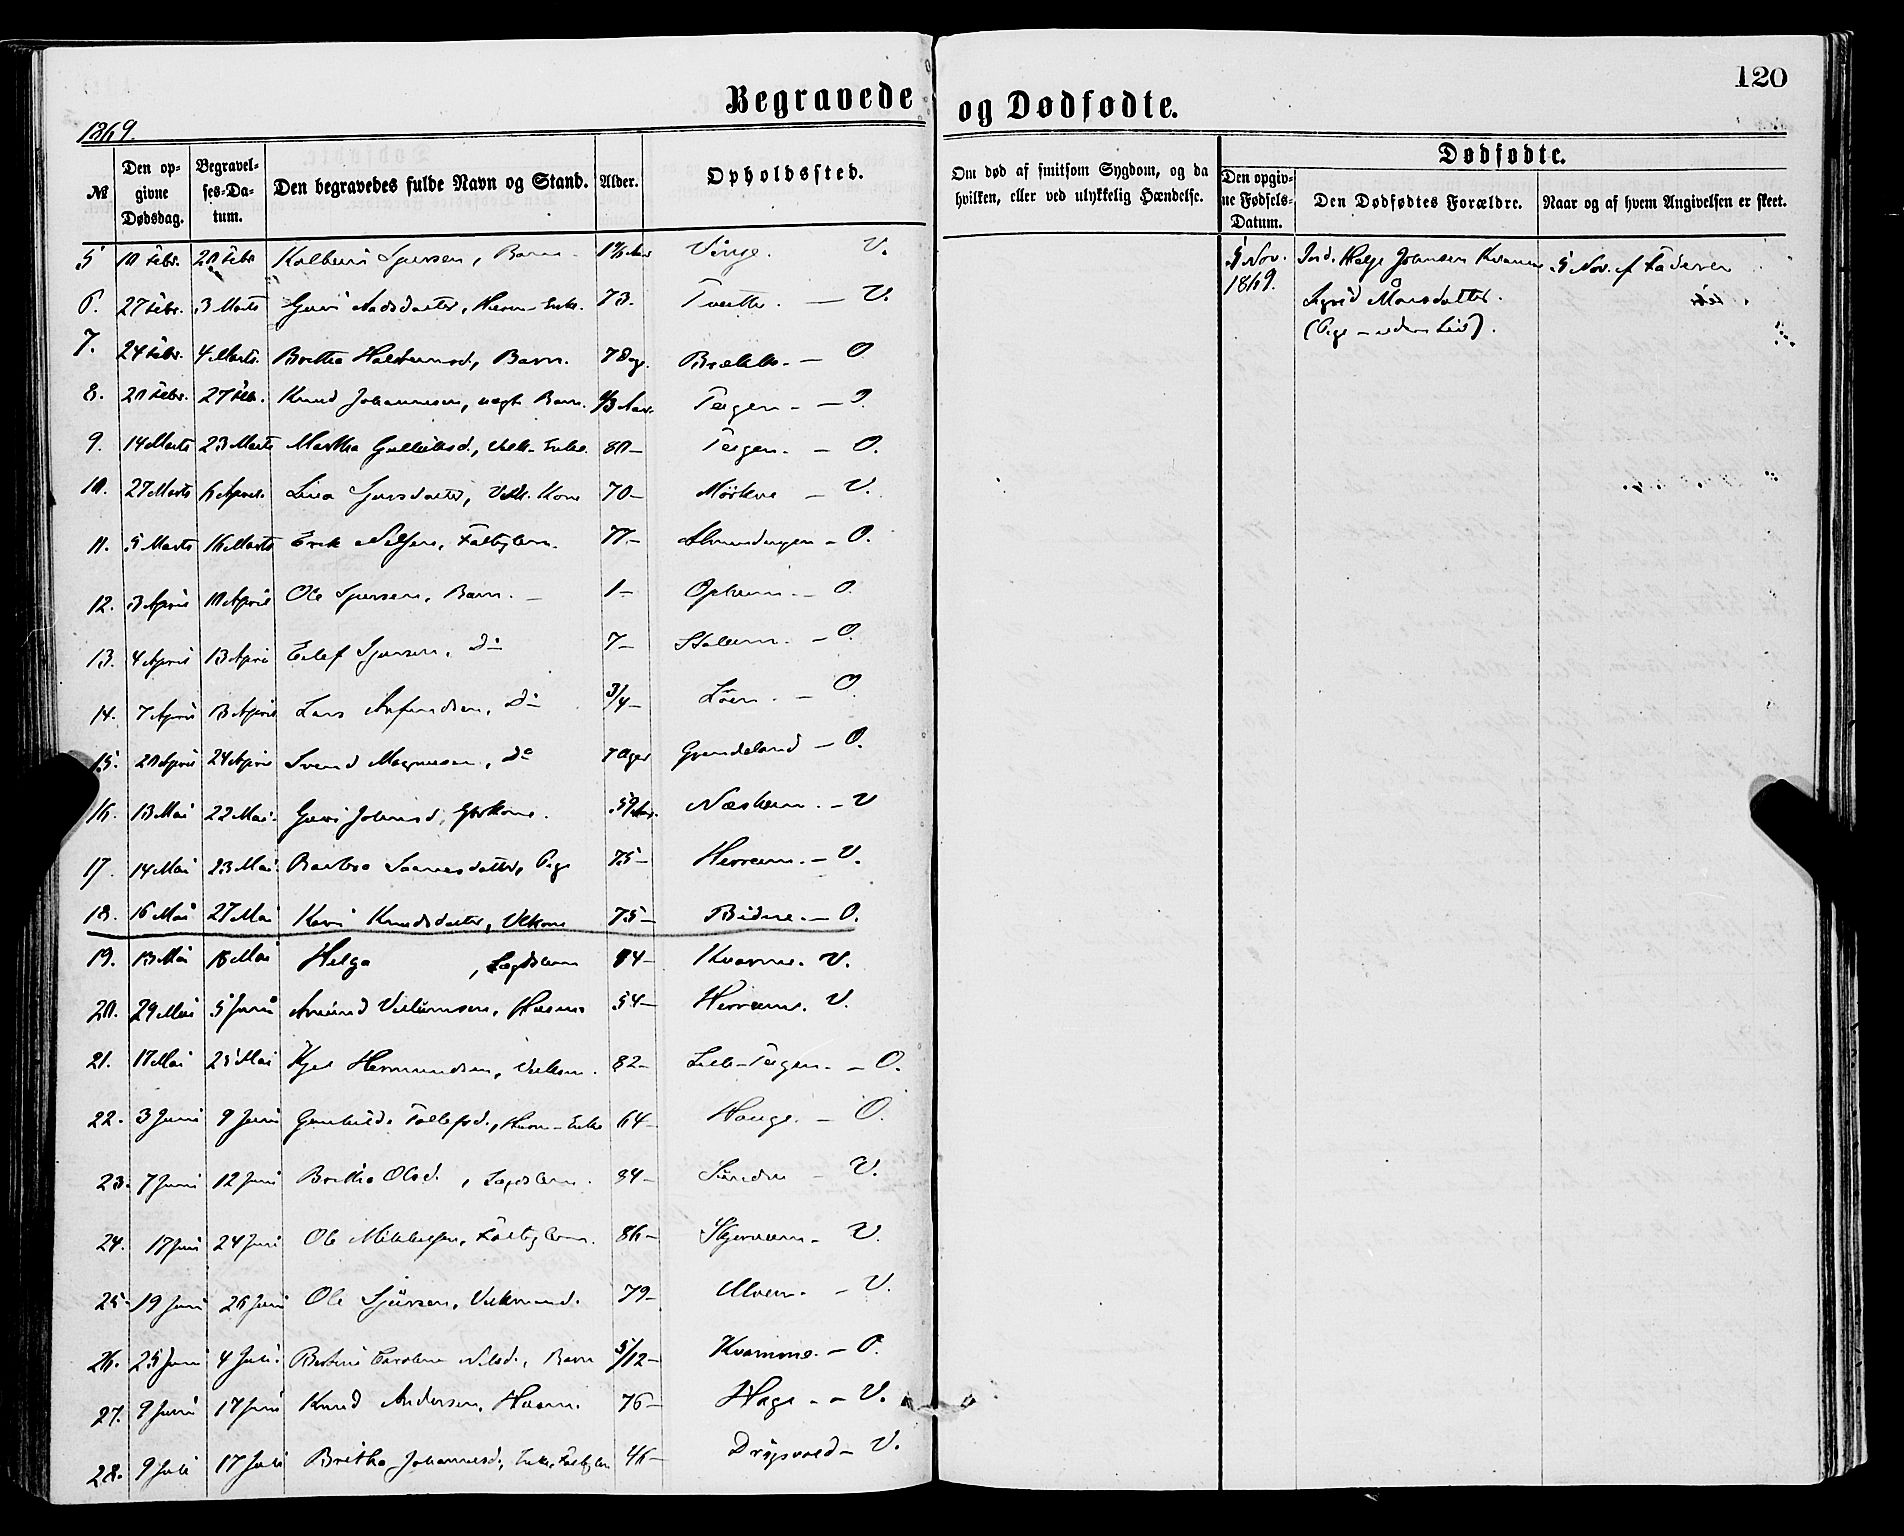 120
Begravede og Dødfødte.
1869.
№ Den opgivne Dødsdag. Begravelses-Datum. Den begravedes fulde Navn og Stand. Alder. Opholdssted. Om død af smitsom Sygdom, og da hvilken, eller ved ulykkelig Hændelse. Dødfødte. Den opgivne Fødsels-Datum. Den Dødfødtes Forældre. Naar og af hvem Angivelsen er skeet.
5 10 Febr. 20 Febr Kolbein Sjursen, Barn - Vinge. V.
5 Nov. 1869. Helge Johnsen Kvarme 5 Nov. af Faderen
Sigrid Monsdatter.
(Pige - uden Liv).
6. 27 Febr. 3 Marts Guri Aadsdatter, Huusm-Enke. 73. Tveite. - V.
7. 24 Febr. 4 Marts. Britha Halsteinsd, Barn. 7 Dage. Brække. - O
8. 20 Febr. 27 Feb. Knud Johannesen, uægt. Barn. Teigen - - O.
9. 14 Marts 23 Marts Martha Gulleiksd., Enke. 80 - Teigen. - O.
10. 27 Marts 6 April. Sjursdatter, Kone 70 - Mørkve - V.
11. 5 Marts 16 Marts Erik Nilsen, Fattiglem. 77. - - O.
12. 3 April 10 April Ole Sjursen, Barn. - 1 - Opheim. - O.
13. 4 April 13 April Eilef Sjursen, Do 7 - Stalem. - O.
14. 7 April 13 April Lars Arfindsen, Do 3/4 - Løen. - O.
15. 20 April 24 April Svend Magnusen, Do 7 Uger Grendeland - O.
16. 13 Mai 22 Mai. Guri Johnsd, Gbrkone. 59 Aar. Næsheim. - V
17. 14 Mai 23 Mai. Barbro Datter, Pige 75 - Herreim. - V.
18. 16 Mai 27 Mai Kari Knudsdatter, Vilkone 75 - Bidne. - O.
19. 13 Mai 18 Mai Helga , Lægdslem 84 - Kvarme. V.
20. 29 Mai 5 Juni Huusm. 54 - Herreim. V.
21. 17 Mai 25 Mai Hermundsen, 82 - Lille-Teigen. - O.
22. 3 Juni 9 Juni Gunhilde Tollefsd., Huusm-Enke 64 - Hauge. - O.
23. 7 Juni 12 Juni Britha Olsd. , Lægdslem. 84 - Sundve - V.
24. 17 Juni 24 Juni Ole Mikkelsen, Fattiglem. 86 - Skjerveim - V.
25. 19 Juni 26 Juni Ole Sjursen, Vilkmand. 79 - - V.
26. 25 Juni 4 Juli. Caroline Nilsd., Barn 5/12 - Kvamme. - O.
27. 9 Juni 17 Juni Knud Andersen, Huusm. 76 - Hage - - V.
28. 9 Juli 17 Juli Britha Johannesd., Enke, Fattiglem 46 - Drøgsvold - V.